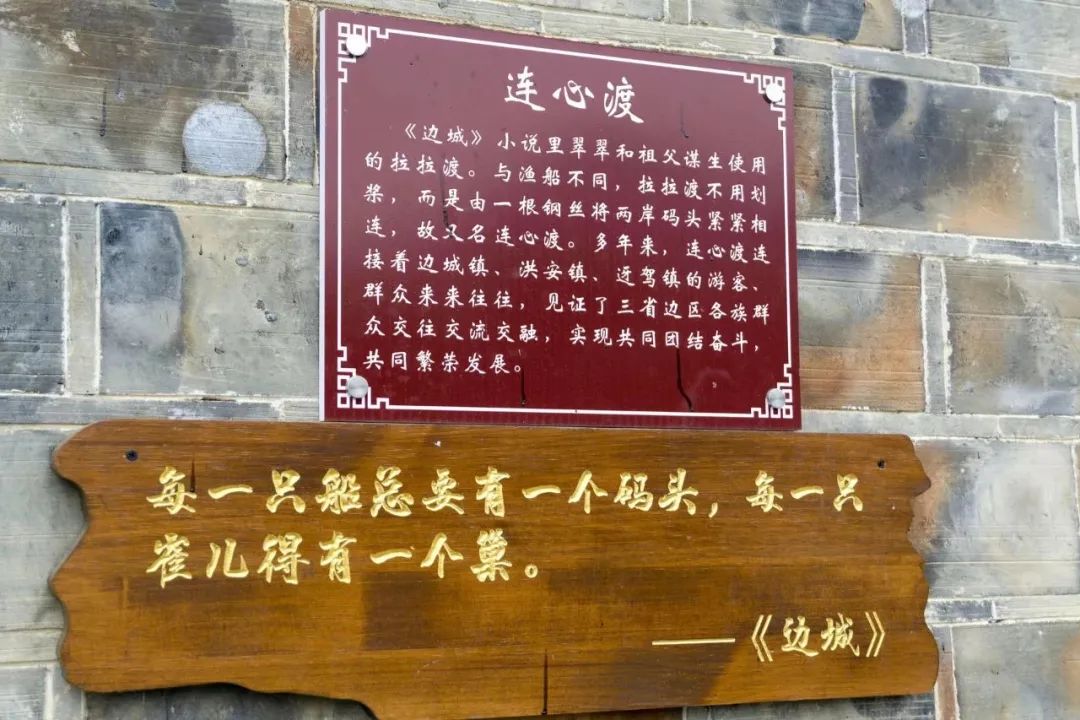 连心渡
《边城》小说里翠翠和祖父谋生使用
的拉拉渡。与渔船不同，拉拉渡不用划
桨，而是由一根钢丝将两岸码头紧紧相
连，故又名连心渡。多年来，连心渡连
接着边城镇、洪安镇、迓驾镇的游客、
群众来来往往，见证了三省边区各族群
众交往交流交融，实现共同团结奋斗，
共同繁荣发展。
每一只船总要有一个码头，每一只
雀儿得有一个巢。
——《边城》